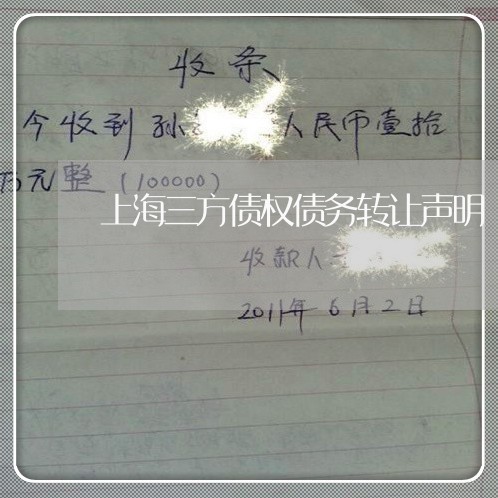 收条
今收到孙 人民币壹拾
万元整(100000)
上海三方债权债务转让声明
收款人
2011年6月2日